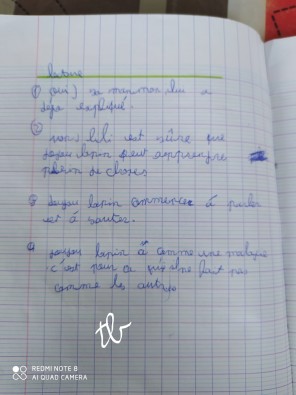 lecture
① (oui) sa maman lui a
déjà expliqué.
②
non lili est sûre que
doudou lapin peut apprendre
plein de choses
③ doudou lapin commence à parler
et à sauter.
④ doudou lapin à comme une maladie
c'est pour ça qu'il ne fait pas
comme les autres
tb
REDMI NOTE 8
AI QUAD CAMERA